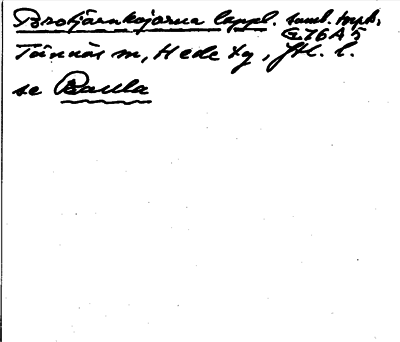 Brotjärnkojorna lappl. saml. topk.
G76A5
Tännäs sn, Hede tg, Jtl. l.
se Paulla